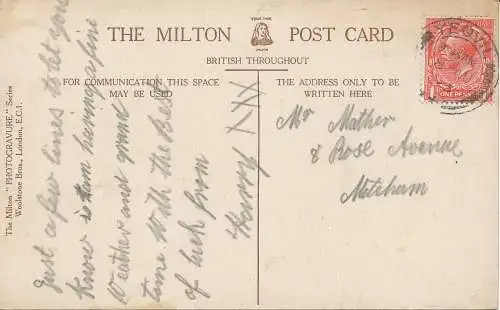 THE MILTON POST CARD
BRITISH THROUGHOUT
FOR COMMUNICATION THIS SPACE
MAY BE USED
THE ADDRESS ONLY TO BE
WRITTEN HERE
The Milton "PHOTOGRAVURE" Series
Woolstone Bros., London, E.C.1.
Just a few lines to let you
Know I am having a fine
Weather and grand
time With the Best
of luck from
Harry XXX
Mr Mather
8 Rose Avenue
Mitcham
ONE PENNY